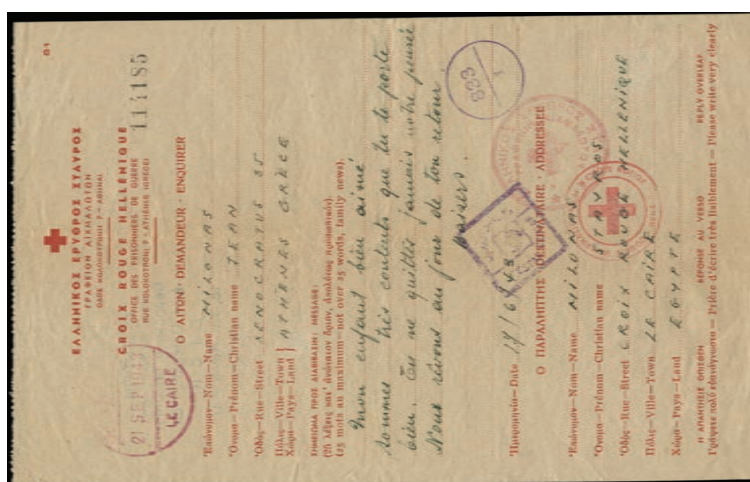 G1
ΕΛΛΗΝΙΚΟΣ ΕΡΥΘΡΟΣ ΣΤΑΥΡΟΣ
ΓΡΑΦΕΙΟΝ ΑΙΧΜΑΛΩΤΩΝ
CROIX ROUGE HELLENIQUE
OFFICE DES PRISONNIERS DE GUERRE
114185
21 SEP 1943
LE CAIRE
Ο ΑΙΤΩΝ · DEMANDEUR · ENQUIRER
Ἐπώνυμον—Nom—Name MILONAS
Ὄνομα—Prénom—Christian name JEAN
Ὁδός—Rue—Street XENOCRATUS 35
Πόλις—Ville—Town
Χώρα—Pays—Land ATHÈNES GRÈCE
(25 mots au maximum—not over 25 words, family news).
Mon enfant bien aimé
sommes très contents que tu te porte
bien. Tu ne quittes jamais notre pensée
Nous rêvons au jour de ton retour
baisers.
833
Ἡμερομηνία—Date 17/6/43
Ο ΠΑΡΑΛΗΠΤΗΣ · DESTINATAIRE · ADDRESSEE
Ἐπώνυμον—Nom—Name MILONAS
Ὄνομα—Prénom—Christian name STAVROS
Ὁδός—Rue—Street CROIX ROUGE HELLENIQUE
Πόλις—Ville—Town LE CAIRE
Χώρα—Pays—Land EGYPTE
Η ΑΠΑΝΤΗΣΙΣ ΟΠΙΣΘΕΝ RÉPONSE AU VERSO REPLY OVERLEAF
Γράφατε πολὺ εὐανάγνωστα — Prière d'écrire très lisiblement — Please write very clearly